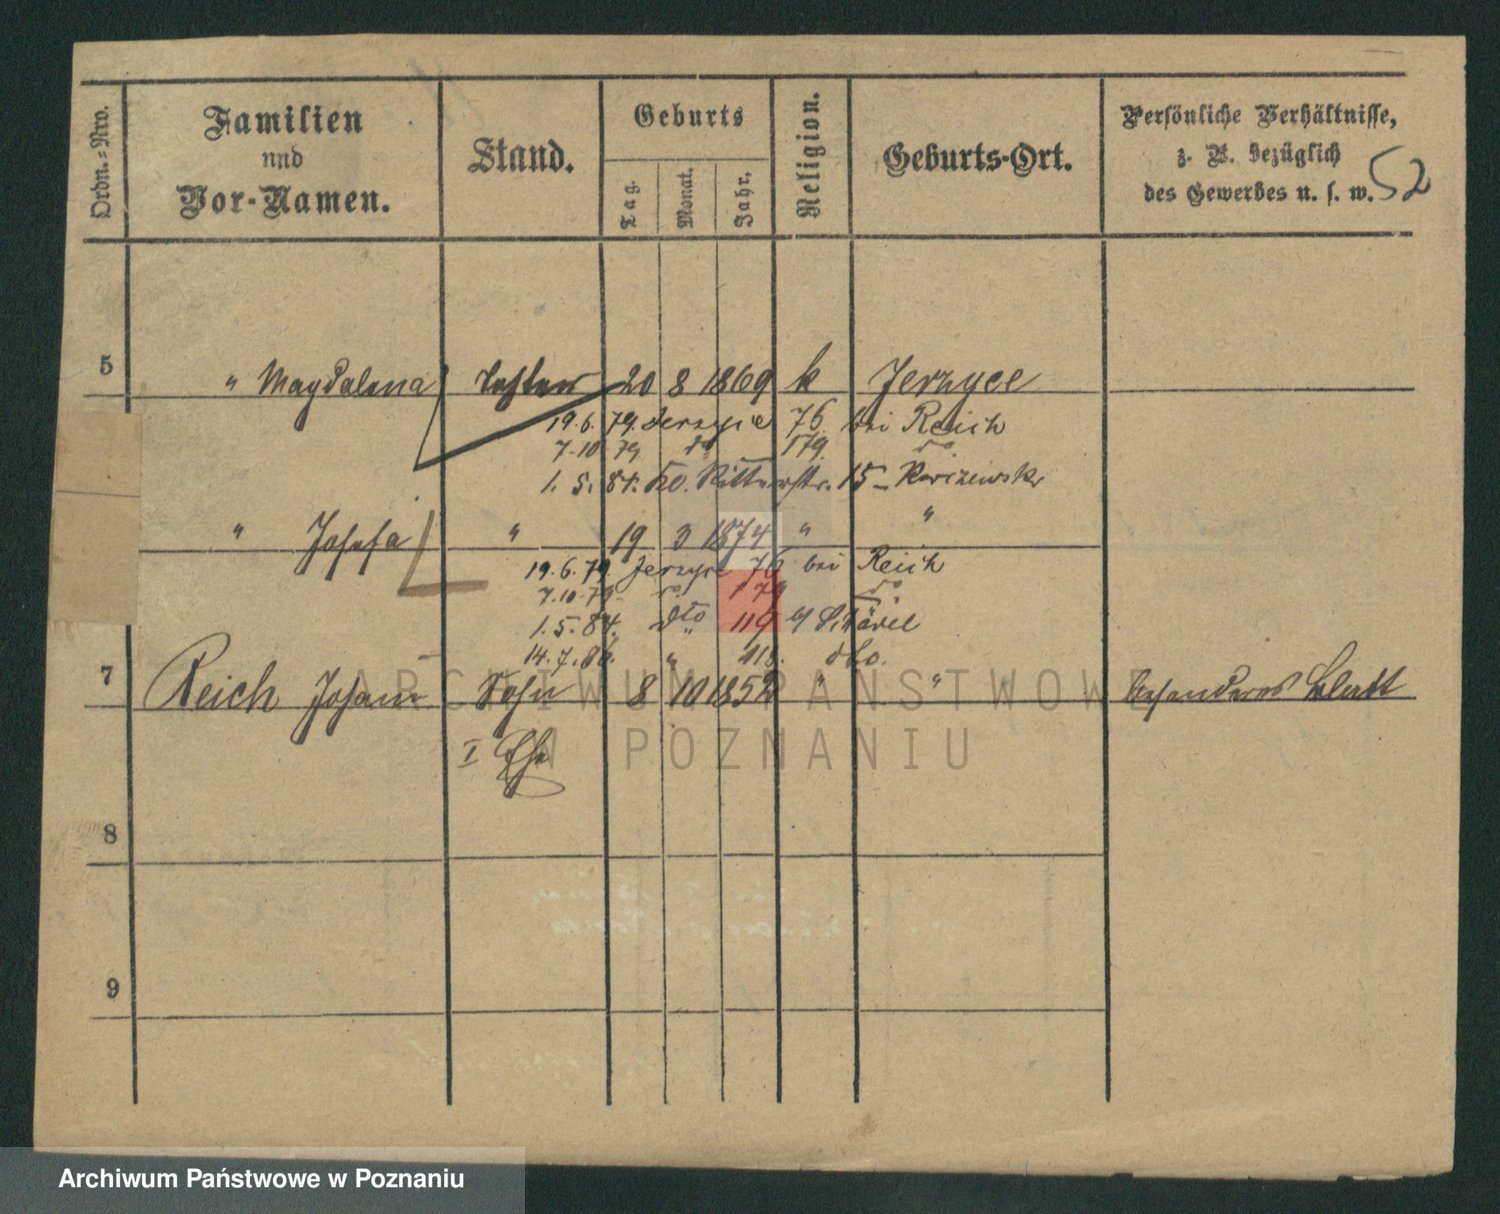 Ordn.=Nro.
Familien
und
Vor-Namen.
Stand.
Geburts
Tag.
Monat.
Jahr.
Religion.
Geburts-Ort.
Persönliche Verhältnisse,
z. B. bezüglich
des Gewerbes u. s. w.
52
5 " Magdalena Tochter 20 8 1869 k Jerzyce
19.6.79. Jerzyce 76 bei Reich
7.10 79 do 179. do
1.5.84. Ritterstr. 15
" Josefa " 19 3 1874 " "
19.6.79. Jerzyce 76 bei Reich
7.10.79 do 179 do
1.5.84. dto 119
14.7.86. " 118. dto.
7 Reich Johann Sohn 8 10 1852 " " besonderes Blatt
I Ehe
8
9
ARCHIWUM PAŃSTWOWE
W POZNANIU
Archiwum Państwowe w Poznaniu